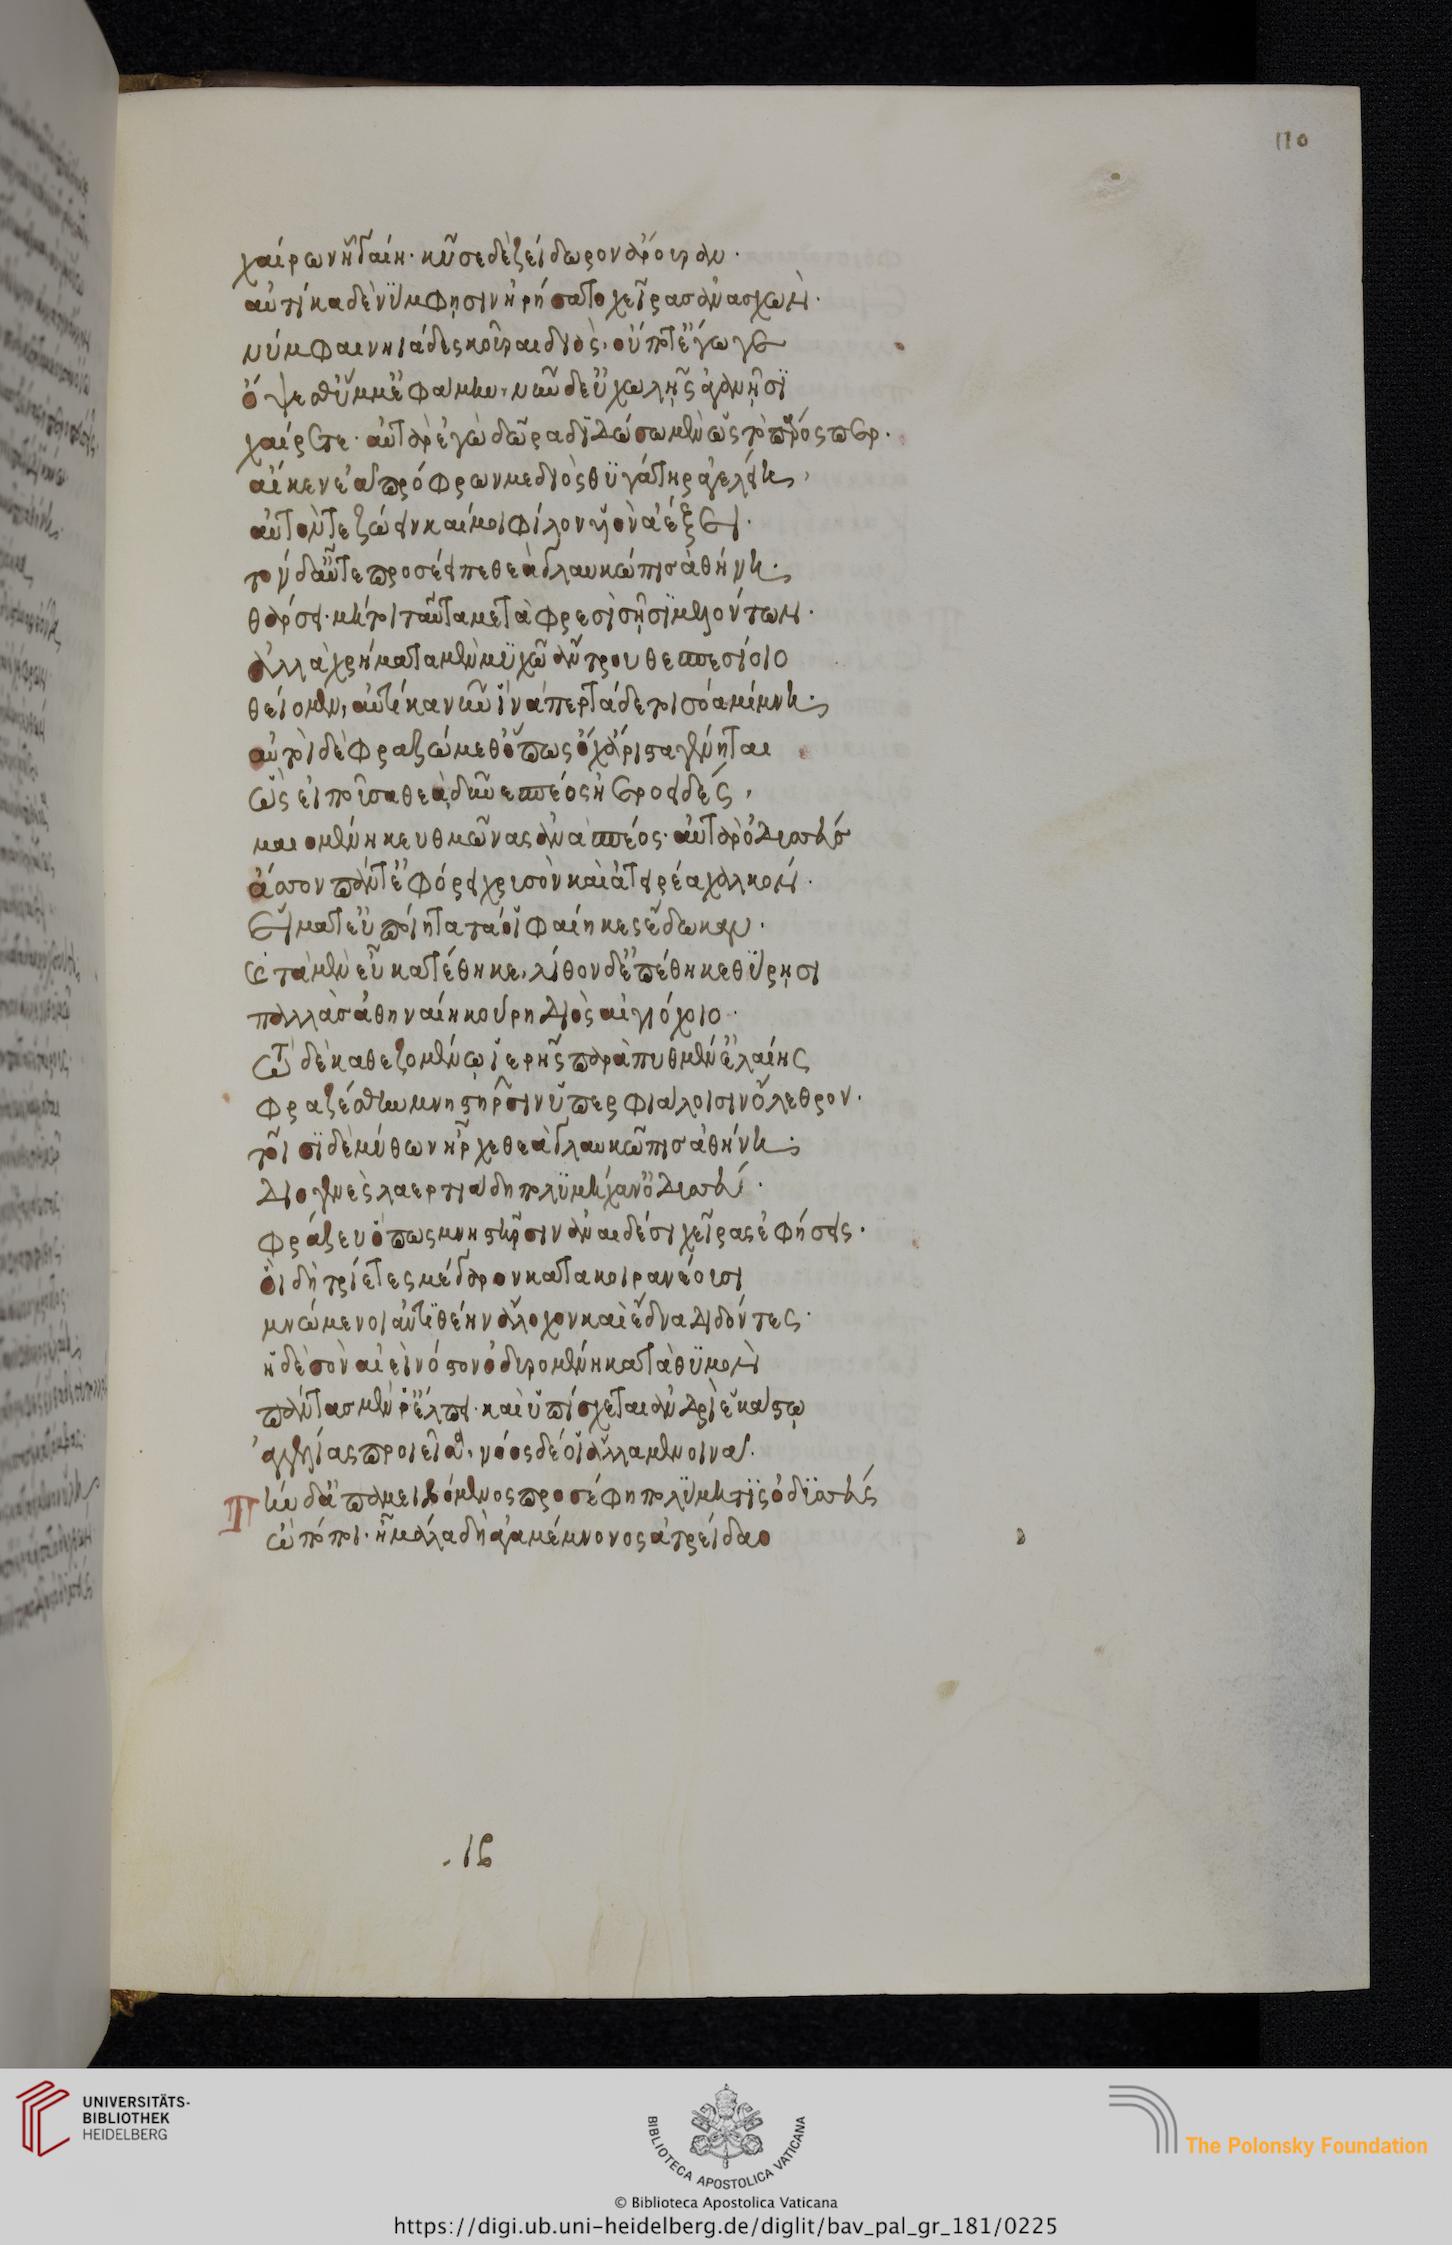 110
χαίρων ἧ γαίη· κῦσε δὲ ζείδωρον ἄρουραν·
αὐτίκα δὲ νύμφησιν ἠρήσατο χεῖρας ἀνασχών·
νύμφαι νηιάδες κοῦραι διὸς, οὔποτ' ἔγωγε
ὄψεσθ' ὔμμ' ἐφάμην, νῦν δ' εὐχωλῇς ἀγανῇσι
χαίρετε· αὐτὰρ ἐγὼ δῶρα διδώσωμεν ὡς τὸ πάρος περ.
αἴ κεν ἐᾶ πρόφρων με διὸς θυγάτηρ ἀγελείη,
αὐτόν τε ζώειν καί μοι φίλον υἱὸν ἀέξει.
τὸν δ' αὖτε προσέειπε θεὰ γλαυκώπις ἀθήνη.
θάρσει· μή τοι ταῦτα μετὰ φρεσὶ σῇσι μελόντων·
ἀλλὰ χρήματα μὲν μυχῶ ἄντρου θεσπεσίοιο
θείομεν, αὐτίκα νῦν ἵνά περ τάδε τοι σόα μίμνη·
αὐτοὶ δὲ φραζώμεθ' ὅπως ὄχ' ἄριστα γένηται
ὣς εἰποῦσα θεὰ δῦνε σπέος ἠεροειδές,
μαιομένη κευθμῶνας ἀνὰ σπέος· αὐτὰρ ὀδυσσεὺς
ἆσσον πάντ' ἐφόρει χρυσὸν καὶ ἀτειρέα χαλκόν·
εἵματ' εὐποίητα τά οἱ φαίηκες ἔδωκαν·
καὶ τὰ μὲν εὖ κατέθηκε, λίθον δ' ἐπέθηκε θύρησι
παλλὰς ἀθηναίη κούρη διὸς αἰγιόχοιο.
τὼ δὲ καθεζομένω ἱερῆς παρὰ πυθμέν' ἐλαίης
φραζέσθων μνηστῆρσιν ὑπερφιάλοισιν ὄλεθρον.
τοῖσι δὲ μύθων ἦρχε θεὰ γλαυκῶπις ἀθήνη.
διογενὲς λαερτιάδη πολυμήχαν' ὀδυσσεῦ·
φράζευ ὅπως μνηστῆρσιν ἀναιδέσι χεῖρας ἐφήσεις.
οἳ δὴ τρίετες μέγαρον κατακοιρανέουσι
μνώμενοι ἀντιθέην ἄλοχον καὶ ἕδνα διδόντες.
ἡ δὲ σὸν αἰεὶ νόστον ὀδυρομένη κατὰ θυμὸν
πάντας μέν ῥ' ἔλπει· καὶ ὑπίσχεται ἀνδρὶ ἑκάστω
ἀγγελίας προιεῖσα, νόος δέ οἱ ἄλλα μενοινᾶ.
τὴν δ' ἀπαμειβόμενος προσέφη πολύμητις ὀδυσσεύς
ὢ πόποι· ἦ μάλα δὴ ἀγαμέμνονος ἀτρείδαο
UNIVERSITÄTS-
BIBLIOTHEK
HEIDELBERG
BIBLIOTECA APOSTOLICA VATICANA
The Polonsky Foundation
© Biblioteca Apostolica Vaticana
https://digi.ub.uni-heidelberg.de/diglit/bav_pal_gr_181/0225